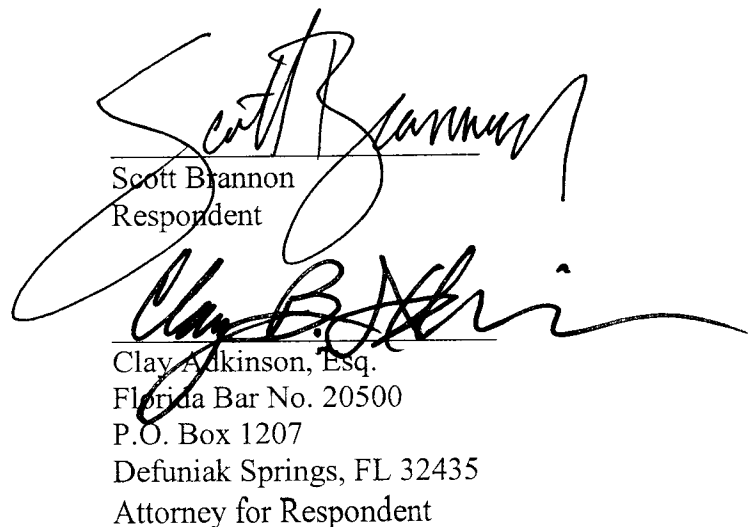 Scott Brannon
Scott Brannon
Respondent
Clay B. Adkinson
Clay Adkinson, Esq.
Florida Bar No. 20500
P.O. Box 1207
Defuniak Springs, FL 32435
Attorney for Respondent